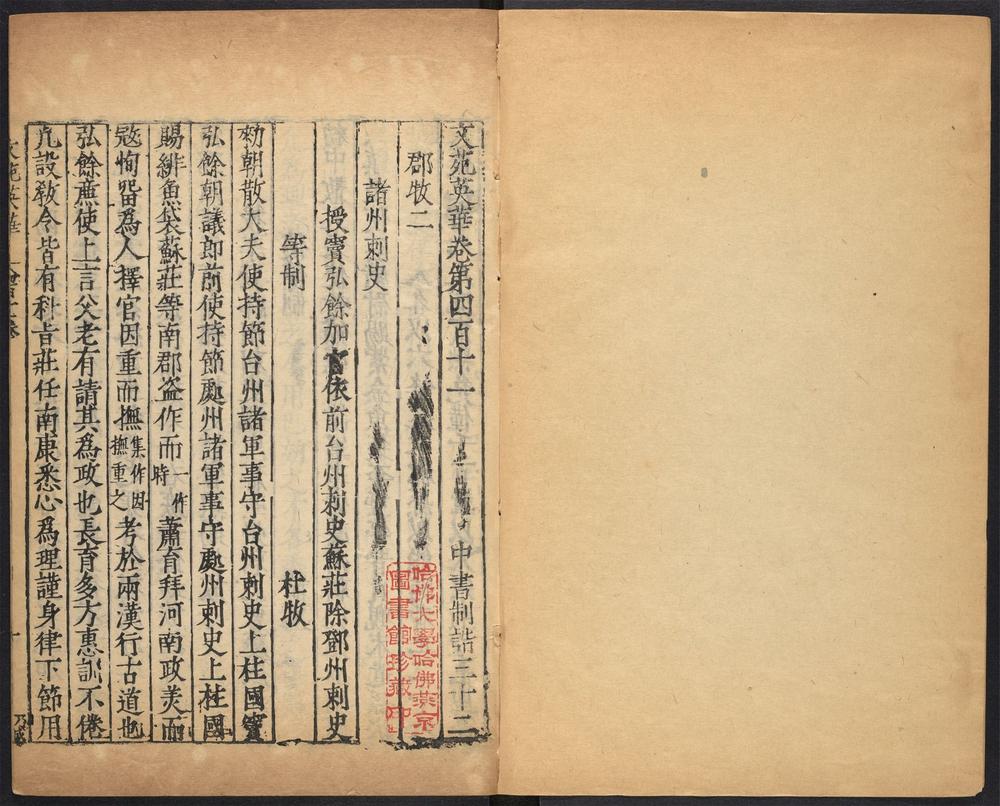 文苑英華卷第四百十一 中書制誥三十二
郡牧二
諸州刺史
授竇弘餘加官依前台州刺史蘇莊除鄧州刺史
等制 杜牧
勑朝散大夫使持節台州諸軍事守台州刺史上柱國竇
弘餘朝議郎前使持節處州諸軍事守處州刺史上柱國
賜緋魚袋蘇莊等南郡盗作而一作時蕭育拜河南政美而
宼恂畱爲人擇官因重而撫集作因重之撫考於兩漢行古道也
弘餘廉使上言父老有請其爲政也長育多方惠訓不倦
凢設敎令皆有科㫖莊任南康悉心爲理謹身律下節用
文苑英華
哈佛大學哈佛燕京
圖書館珍藏印